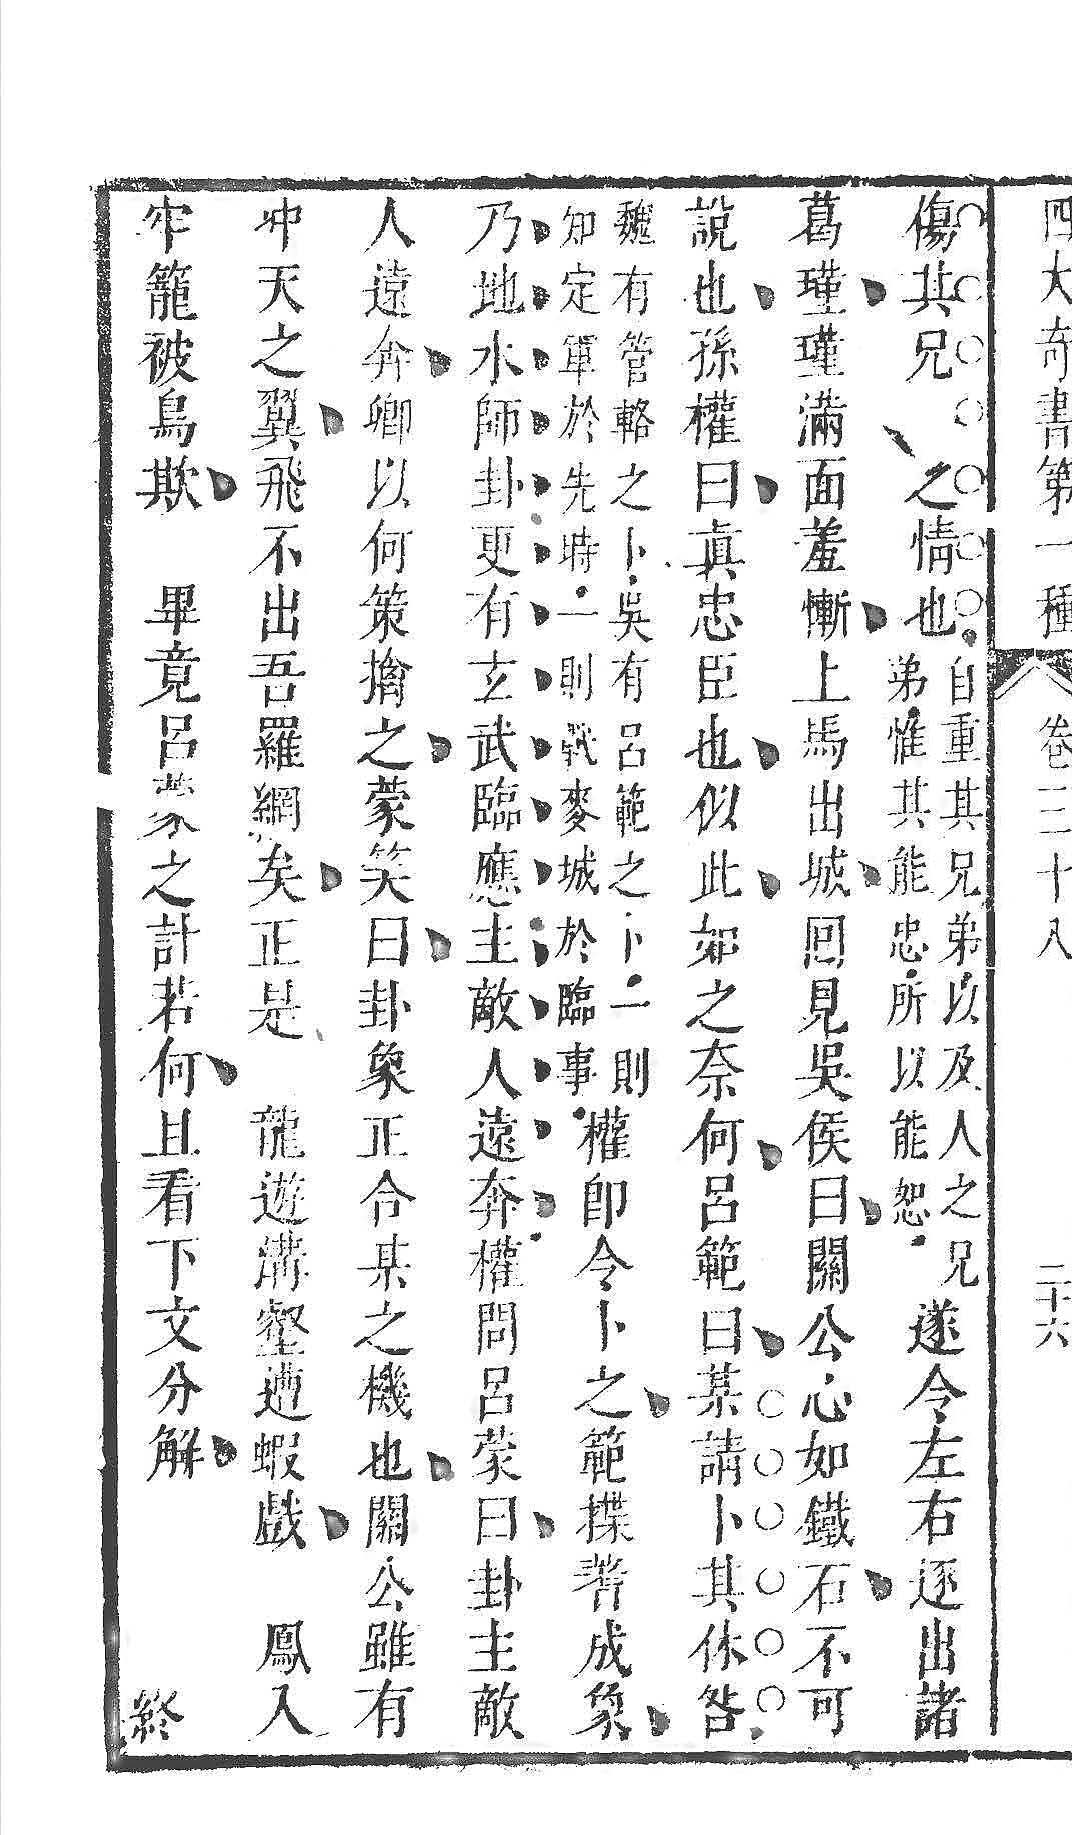 四大奇書第一種 卷三十八 二十六
傷其兄之情也自重其兄弟以及人之兄弟惟其能忠所以能恕遂令左右逐出諸
葛瑾瑾滿面羞慚上馬出城回見吳侯曰關公心如鐵石不可
說也孫權曰真忠臣也似此如之奈何呂範曰某請卜其休咎
魏有管輅之卜吳有呂範之卜一則知定軍於先時一則戰麥城於臨事權即令卜之範揲蓍成象
乃地水師卦更有玄武臨應主敵人遠奔權問呂蒙曰卦主敵
人遠奔卿以何策擒之蒙笑曰卦象正合某之機也關公雖有
冲天之翼飛不出吾羅網矣正是 龍遊溝壑遭蝦戲 鳳入
牢籠被鳥欺 畢竟呂蒙之計若何且看下文分解 終